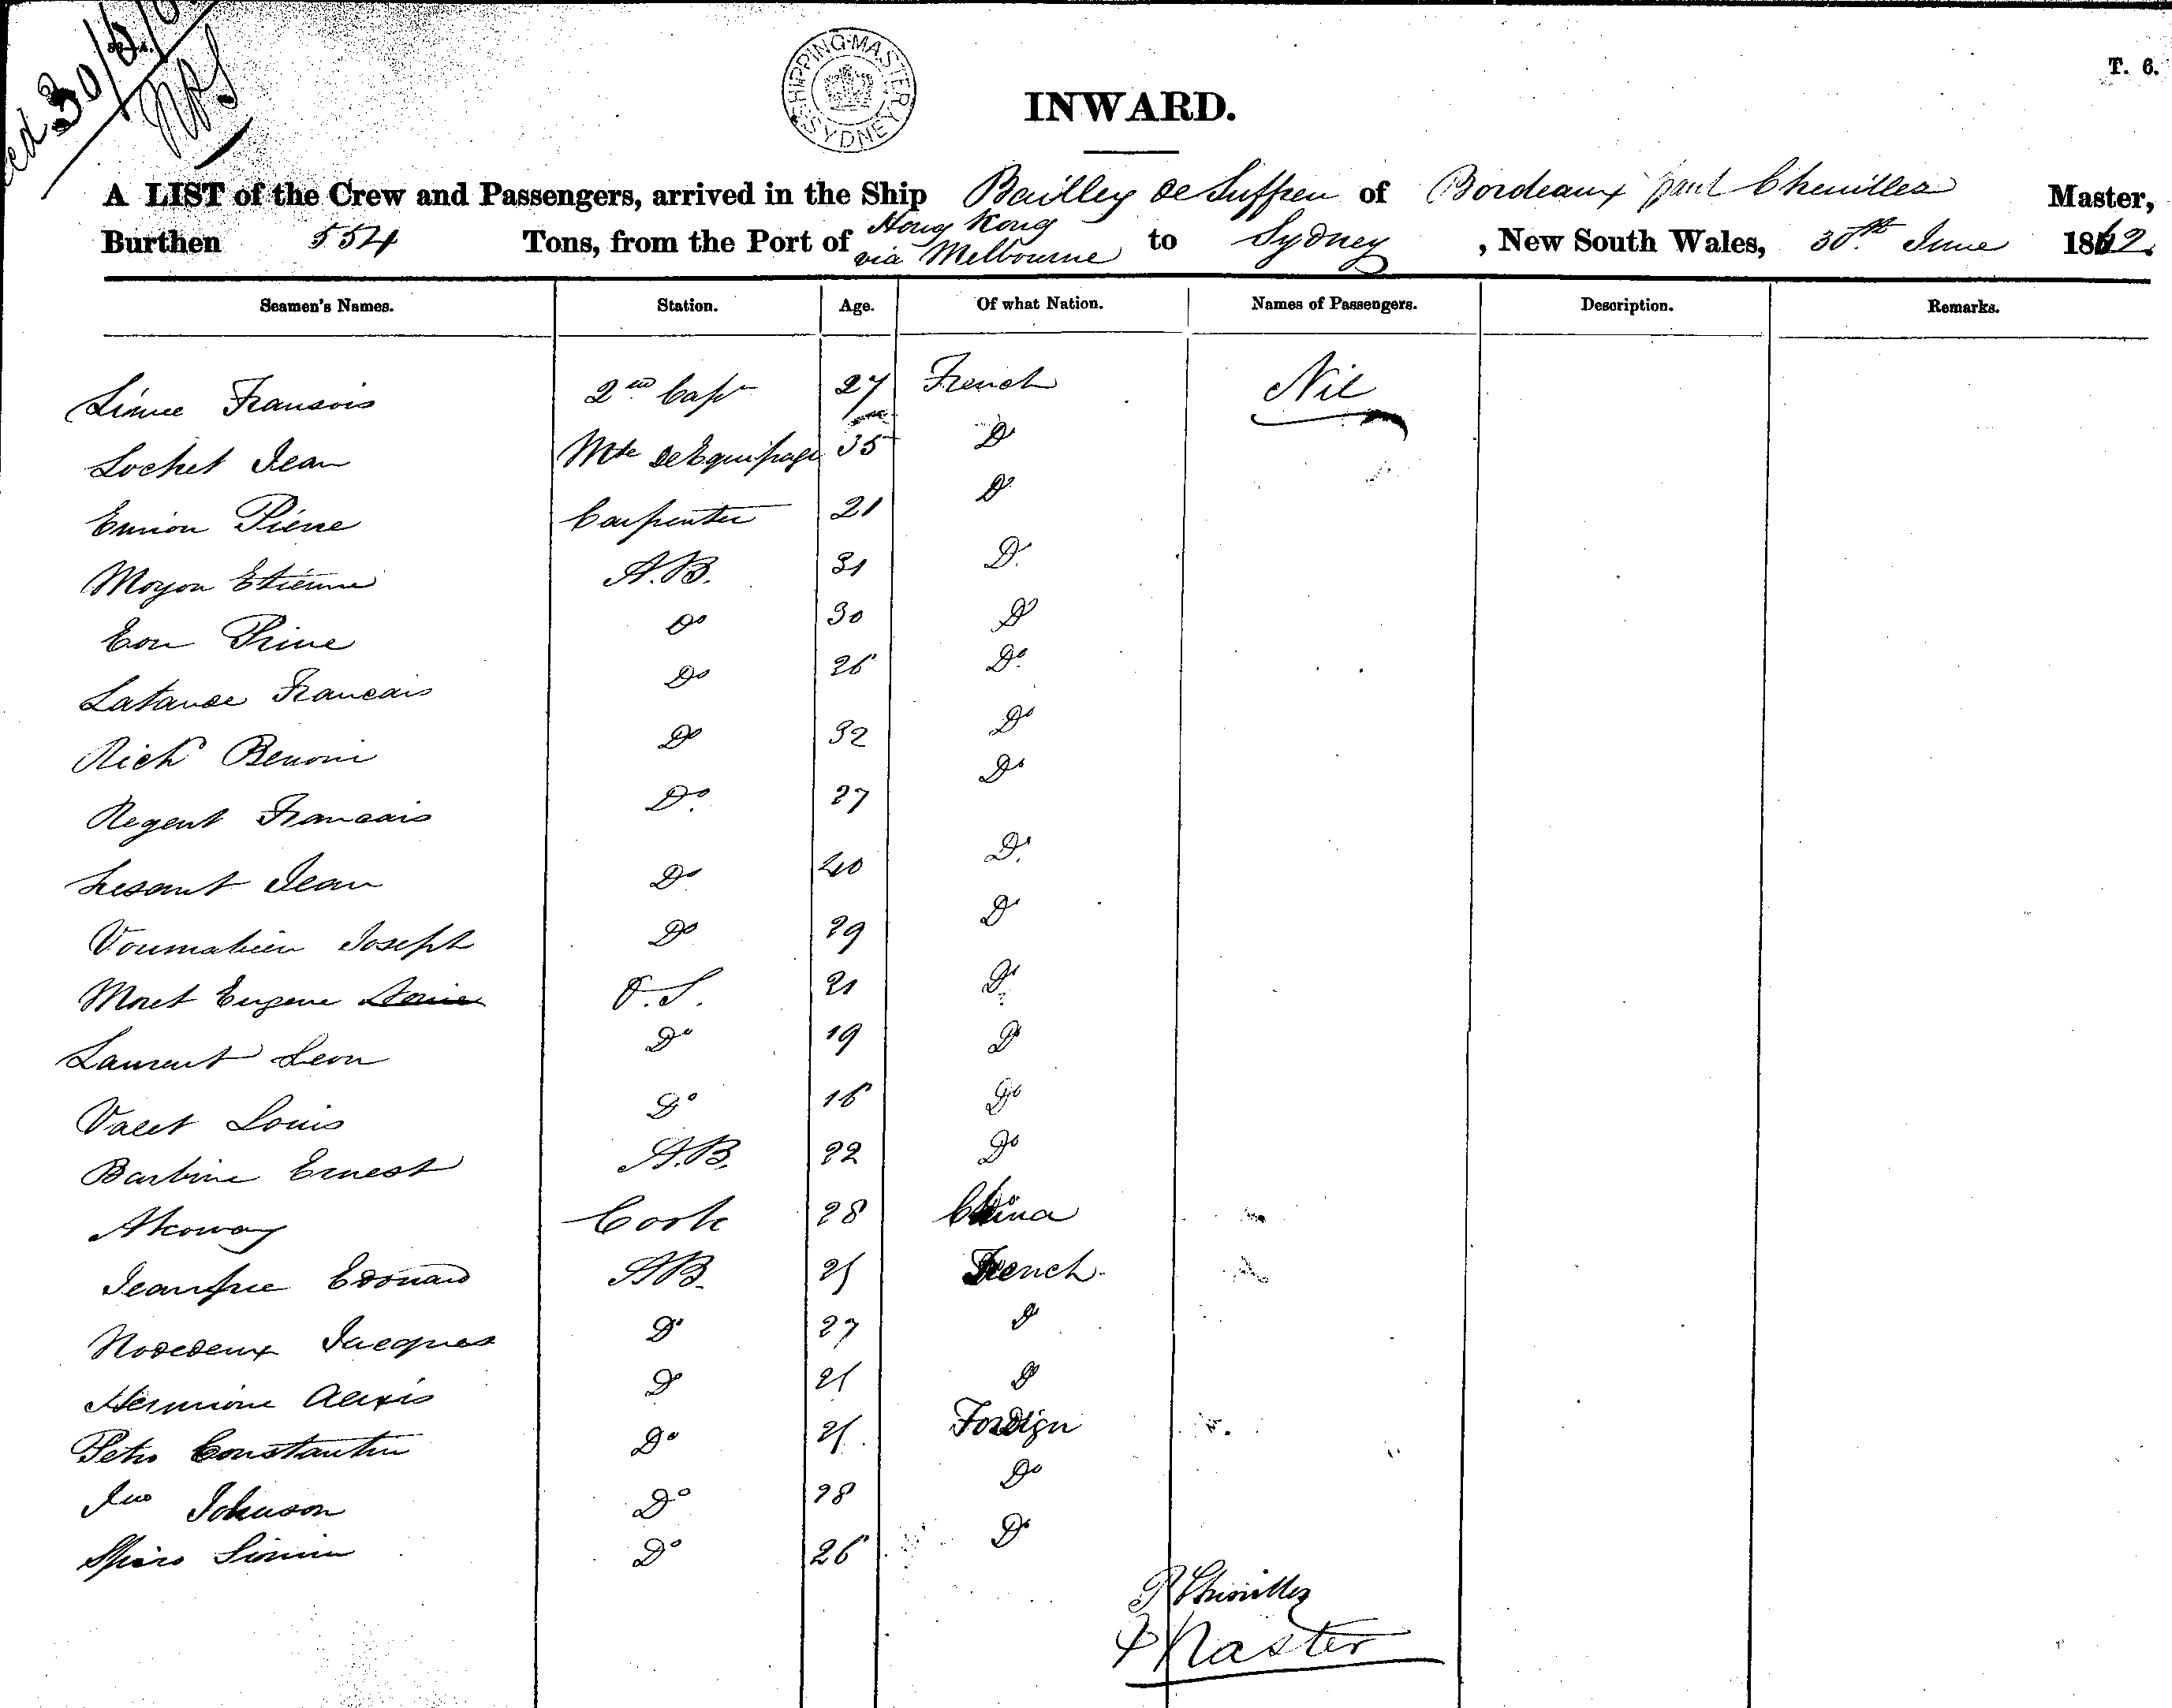 30/6/62
SHIPPING·MASTER SYDNEY
T. 6.
INWARD.
A LIST of the Crew and Passengers, arrived in the Ship Bailley de Suffren of Bordeaux paul Chenilles Master,
Burthen 554 Tons, from the Port of Hong Kong via Melbourne to Sydney, New South Wales, 30th June 1862.
Seamen's Names. Station. Age. Of what Nation. Names of Passengers. Description. Remarks.
Fransois 2nd Capn 27 French Nil
Lochet Jean Mte de Equipage 35 Do
Emion Piérre Carpenter 21 Do
Moyon Etiénne A.B. 31 Do
Eon Do 30 Do
Latanse Francais Do 26 Do
Rich Benoni Do 32 Do
Regent Francais Do 27 Do
Lesant Jean Do 40 Do
Voumatien Joseph Do 29 Do
Moret Eugene O.S. 21 Do
Laurent Leon Do 19 Do
Valet Louis Do 16 Do
Barbine Ernest A.B. 22 Do
Akoway Cook 28 China
Edouard AB. 25 French
Jacques Do 27 Do
Hermione Alexis Do 25 Do
Petro Constantin Do 25 Foreign
Jno Johnson Do 28 Do
Spiro Do 26 Do
P Chenilles
Master